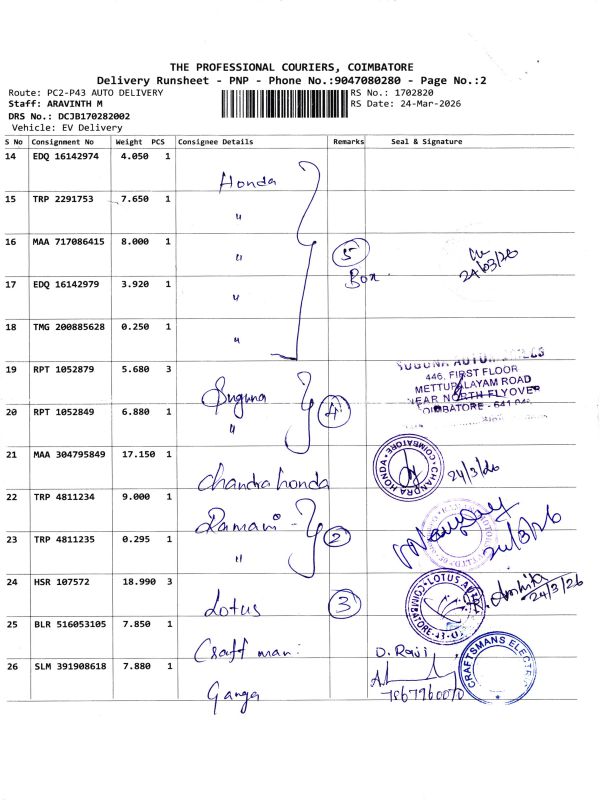 THE PROFESSIONAL COURIERS, COIMBATORE
Delivery Runsheet - PNP - Phone No.:9047080280 - Page No.:2
Route: PC2-P43 AUTO DELIVERY
RS No.: 1702820
Staff: ARAVINTH M
RS Date: 24-Mar-2026
DRS No.: DCJB170282002
Vehicle: EV Delivery
S No Consignment No Weight PCS Consignee Details Remarks Seal & Signature
14 EDQ 16142974 4.050 1 Honda
15 TRP 2291753 7.650 1 "
16 MAA 717086415 8.000 1 " 5 Box 24/03/26
17 EDQ 16142979 3.920 1 "
18 TMG 200885628 0.250 1 "
19 RPT 1052879 5.680 3 Suguna 4
446, FIRST FLOOR
METTUPALAYAM ROAD
NEAR NORTH FLYOVER
COIMBATORE - 641
20 RPT 1052849 6.880 1 "
21 MAA 304795849 17.150 1 Chandra honda
CHANDRA HONDA COIMBATORE 24/3/26
22 TRP 4811234 9.000 1 Ramani 2
23 TRP 4811235 0.295 1 "
24 HSR 107572 18.990 3 Lotus 3
LOTUS AUTO 24/3/26
25 BLR 516053105 7.850 1 Craft man
D. Ravi
CRAFTSMANS ELECTR
26 SLM 391908618 7.880 1 Ganga